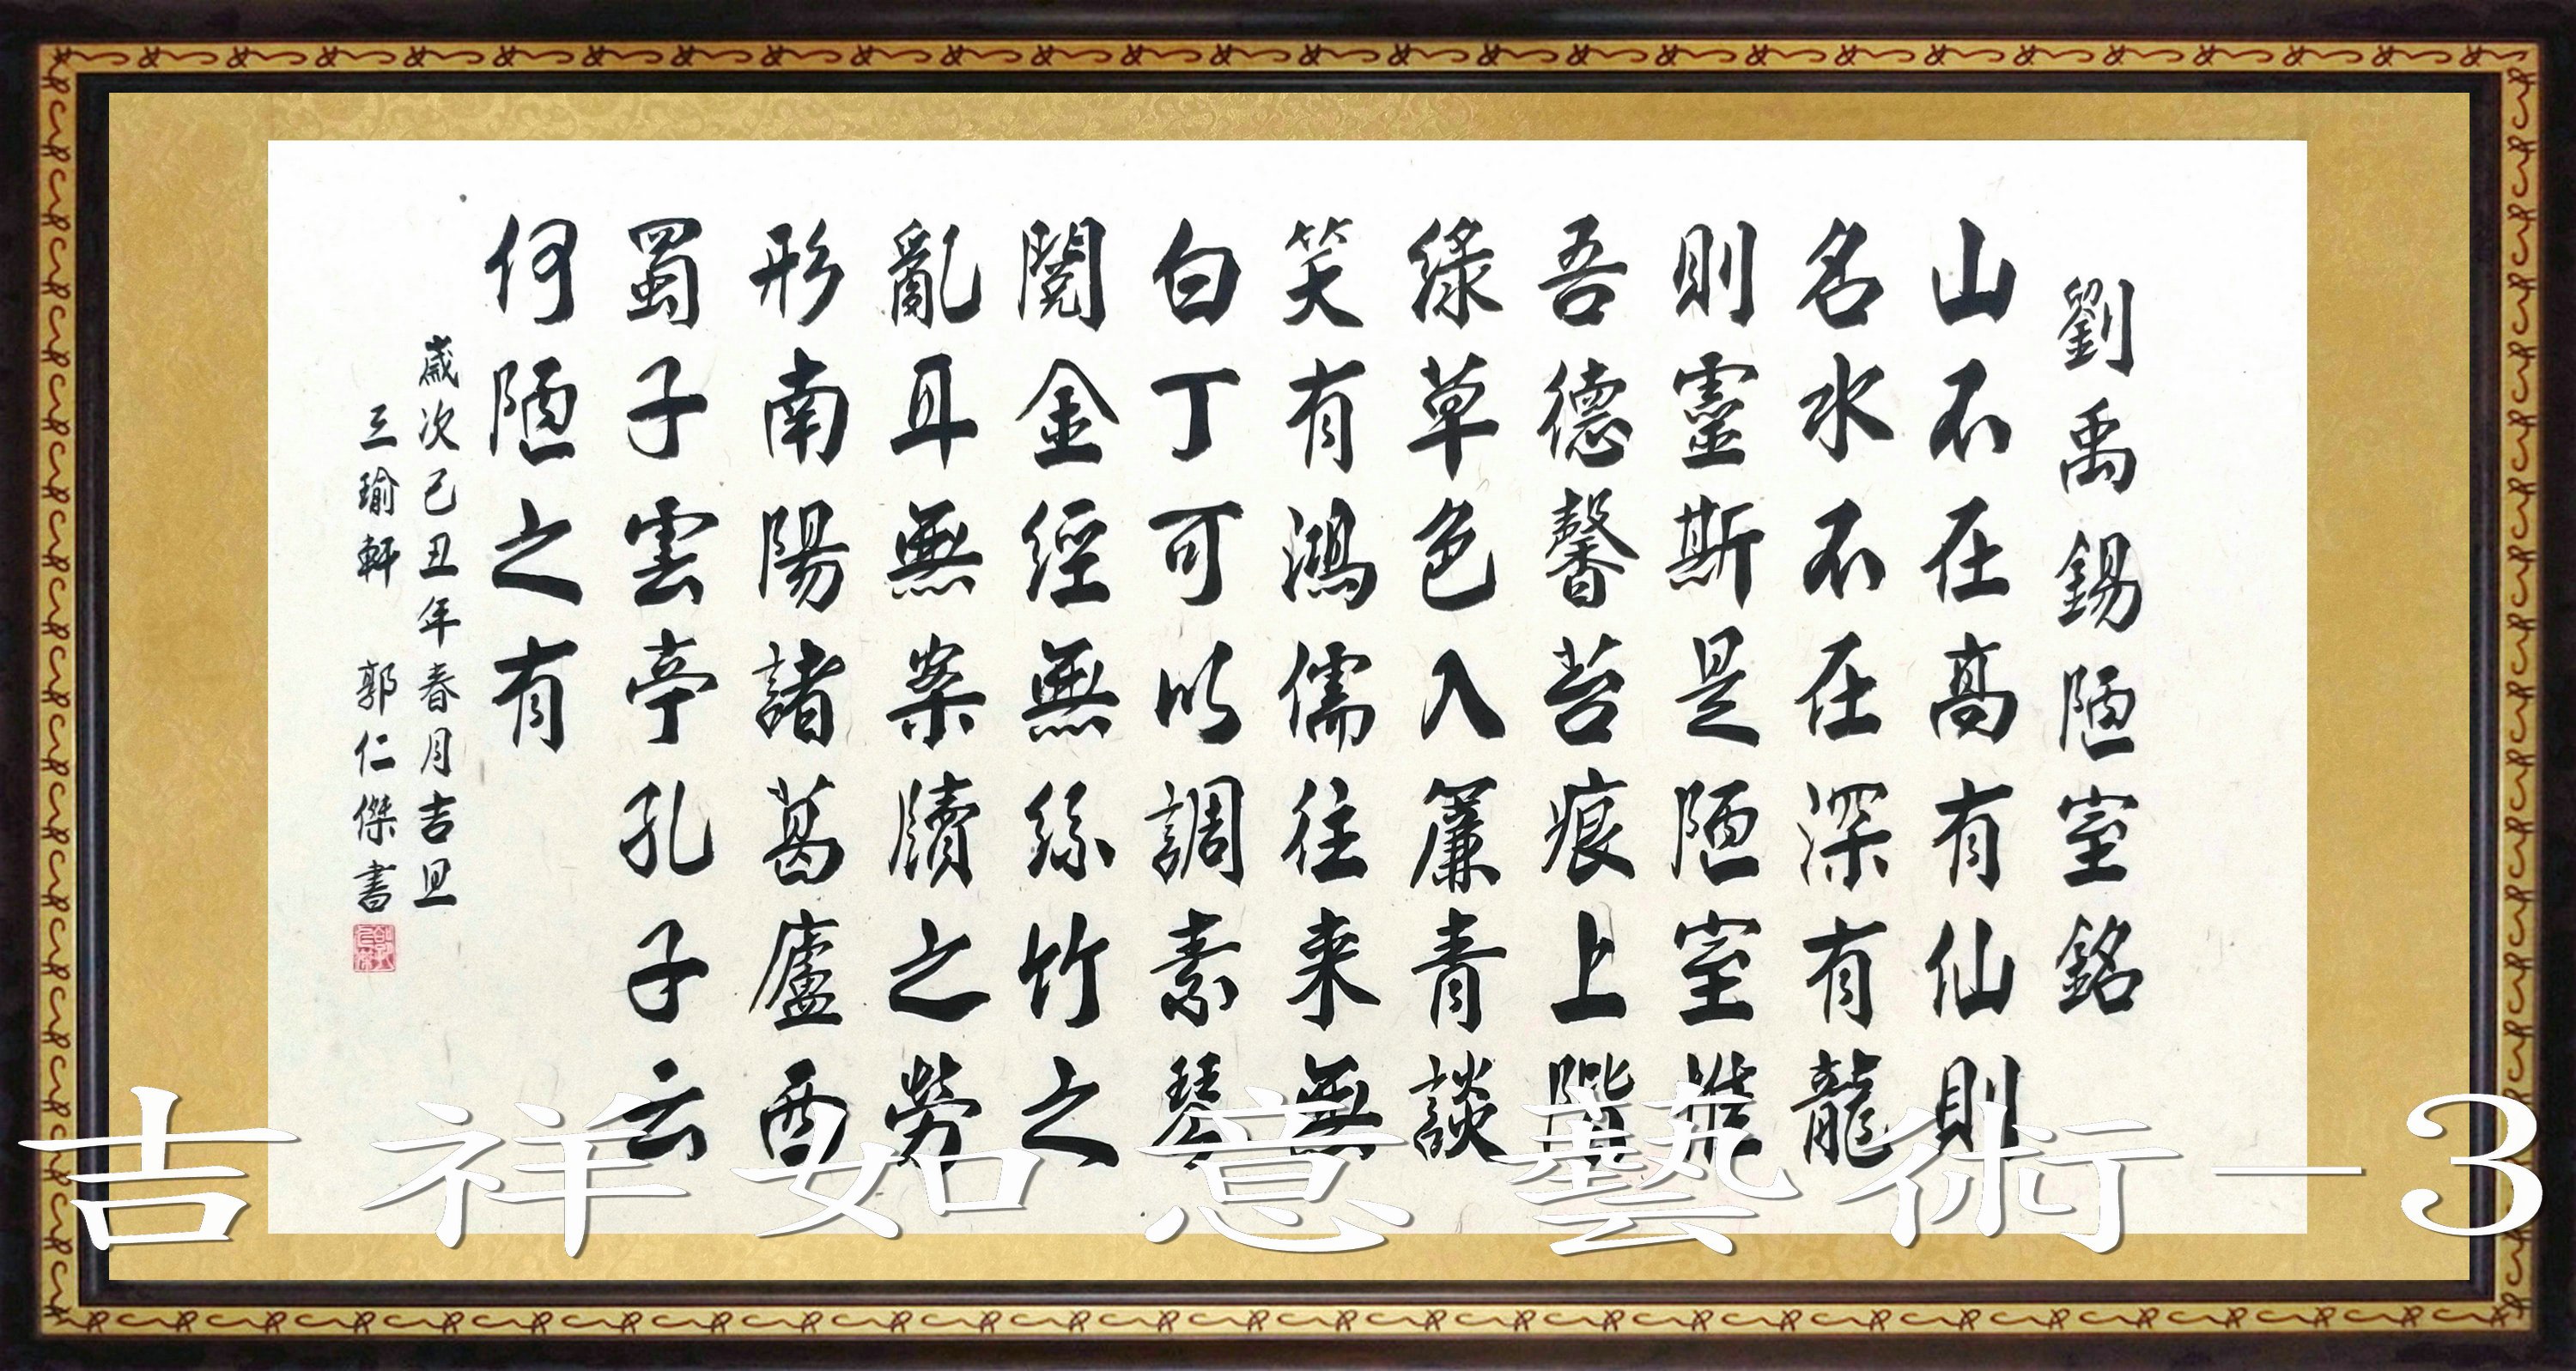 劉禹錫陋室銘
山不在高有仙則
名水不在深有龍
則靈斯是陋室惟
吾德馨苔痕上階
綠草色入簾青談
笑有鴻儒往来無
白丁可以調素琴
閱金經無絲竹之
亂耳無案牘之勞
形南陽諸葛廬西
蜀子雲亭孔子云
何陋之有
歲次己丑年春月吉旦
三瑜軒 郭仁傑書
吉祥如意藝術-3